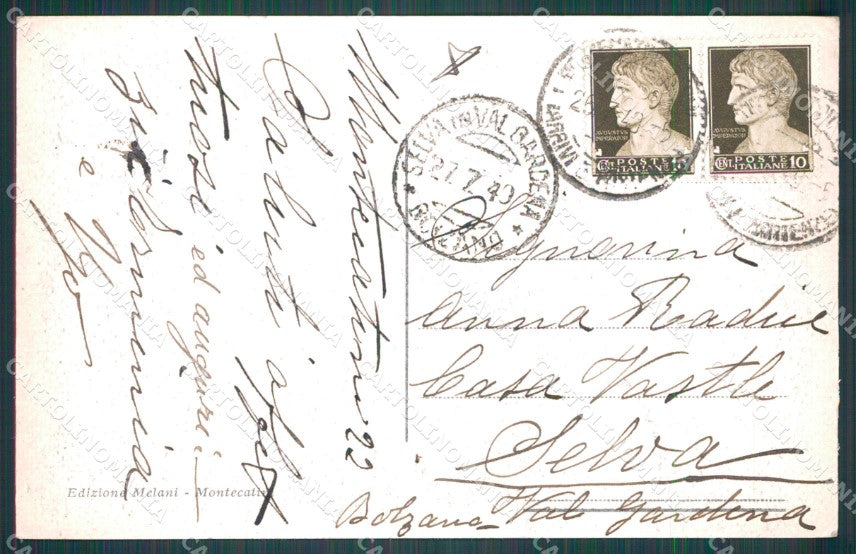 Montecatini 22
Saluti affet
tuosi ed auguri!
zie Ermenia
e Ugo
Edizione Melani - Montecatini
SELVA IN VAL GARDENA
27.7.40
BOLZANO
AVGVSTVS
IMPERATOR
CENT. POSTE ITALIANE 10
AVGVSTVS
IMPERATOR
CENT. POSTE ITALIANE 10
Signorina
Anna
Casa Vastlè
Selva
Bolzano - Val Gardena
CARTOLINOMANIA